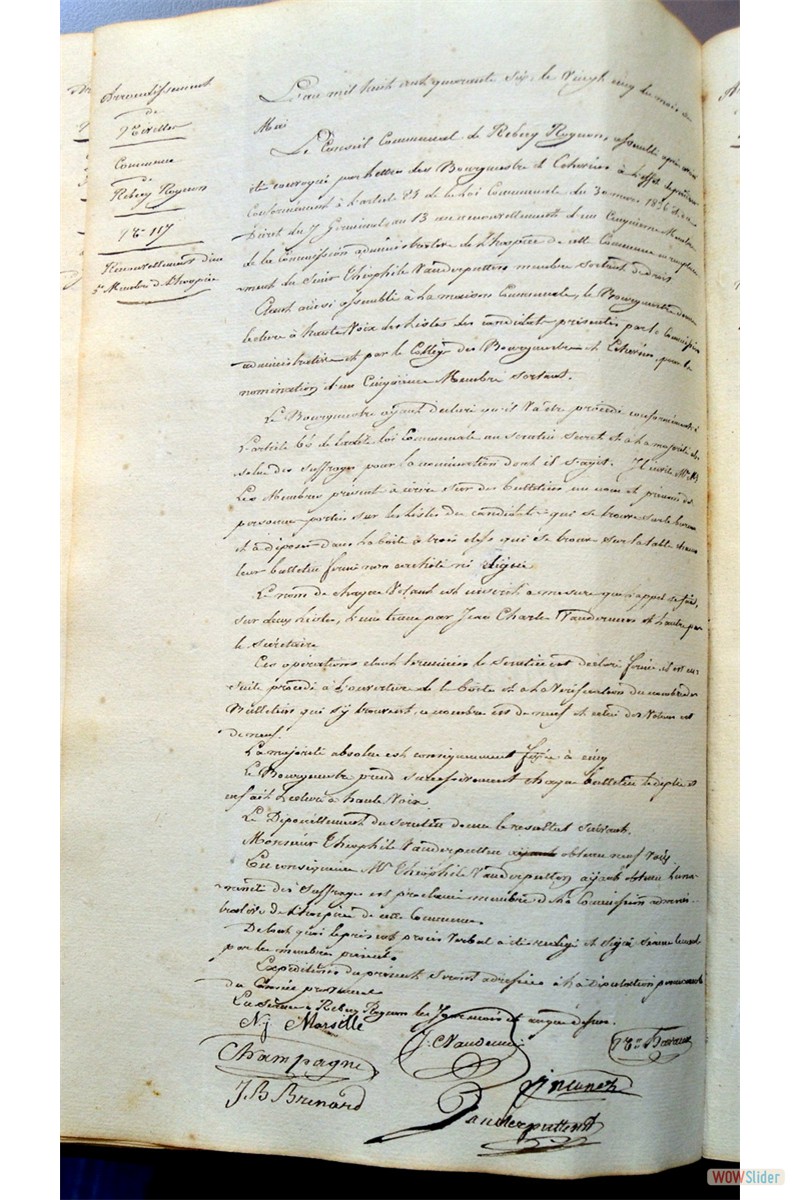 Arrondissement
de
Nivelles
Commune
de
Rebecq Rognon
N° 117
Renouvellement d'un
5e Membre de l'hospice
L'an mil huit cent quarante six, le Vingt cinq du mois de
Mai
Le Conseil Communal de Rebecq Rognon assemblé après avoir
été convoqué par lettre des Bourgmestre et Echevins à l'effet de procéder
Conformément à l'article 84 de la loi Communale du 30 mars 1836 et au
Décret du 7 Germinal an 13 au renouvellement d'un Cinquième Membre
de la Commission administrative de l'hospice de cette Commune en remplace
ment du Sieur Théophile Vanderputten membre sortant de droit
Etant aussi assemblé à la maison Communale, le Bourgmestre donne
lecture à haute Voix des listes des candidats présentés par la Commission
administrative et par le Collège des Bourgmestre et Echevins, pour la
nomination d'un Cinquième Membre sortant.
Le Bourgmestre ayant déclaré qu'il Va être procédé conformément à
l'article 66 de ladite loi Communale au scrutin secret et à la majorité ab
solue des suffrages pour la nomination dont il s'agit. Il invite MM.
Les Membres présent à écrire sur des bulletins un nom et prénom des
personnes portées sur les listes des candidats qui se trouve sur le bureau
et à déposer dans la boîte à trois clefs qui se trouve sur la table
leur bulletin fermé non cacheté ni signé
Le nom de chaque Votant est inscrit à mesure que l'appel se fait,
sur deux listes, l'une tenue par Jean Charles et l'autre par
le Secrétaire
Ces opérations étant terminées le Scrutin est déclaré fermé, il est en
suite procédé à l'ouverture de la boîte et à la Vérification du nombre des
Bulletins qui s'y trouvent, ce nombre est de neuf et celui des Votans est
de neuf.
La majorité absolue est conséquemment fixée à cinq
Le Bourgmestre prend successivement chaque bulletin le déplie et
en fait Lecture à haute Voix.
Le Dépouillement du Scrutin donne le résultat suivant.
Monsieur Théophile Vanderputten ayant obtenu neuf voix,
En conséquence Mr Théophile Vanderputten ayant obtenu l'una
nimité des Suffrages est proclamé membre de la Commission adminis
trative de l'hospice de cette Commune.
De tout quoi le présent procès Verbal a été rédigé et signé
par les membres présents
Expéditions du présent seront adressées à la députation permanente
du Conseil provincial
En Séance à Rebecq Rognon les Jour mois et an que dessus.
Nj Marsille
Champagne
J B Brenard
Vanderputten
WOWSlider